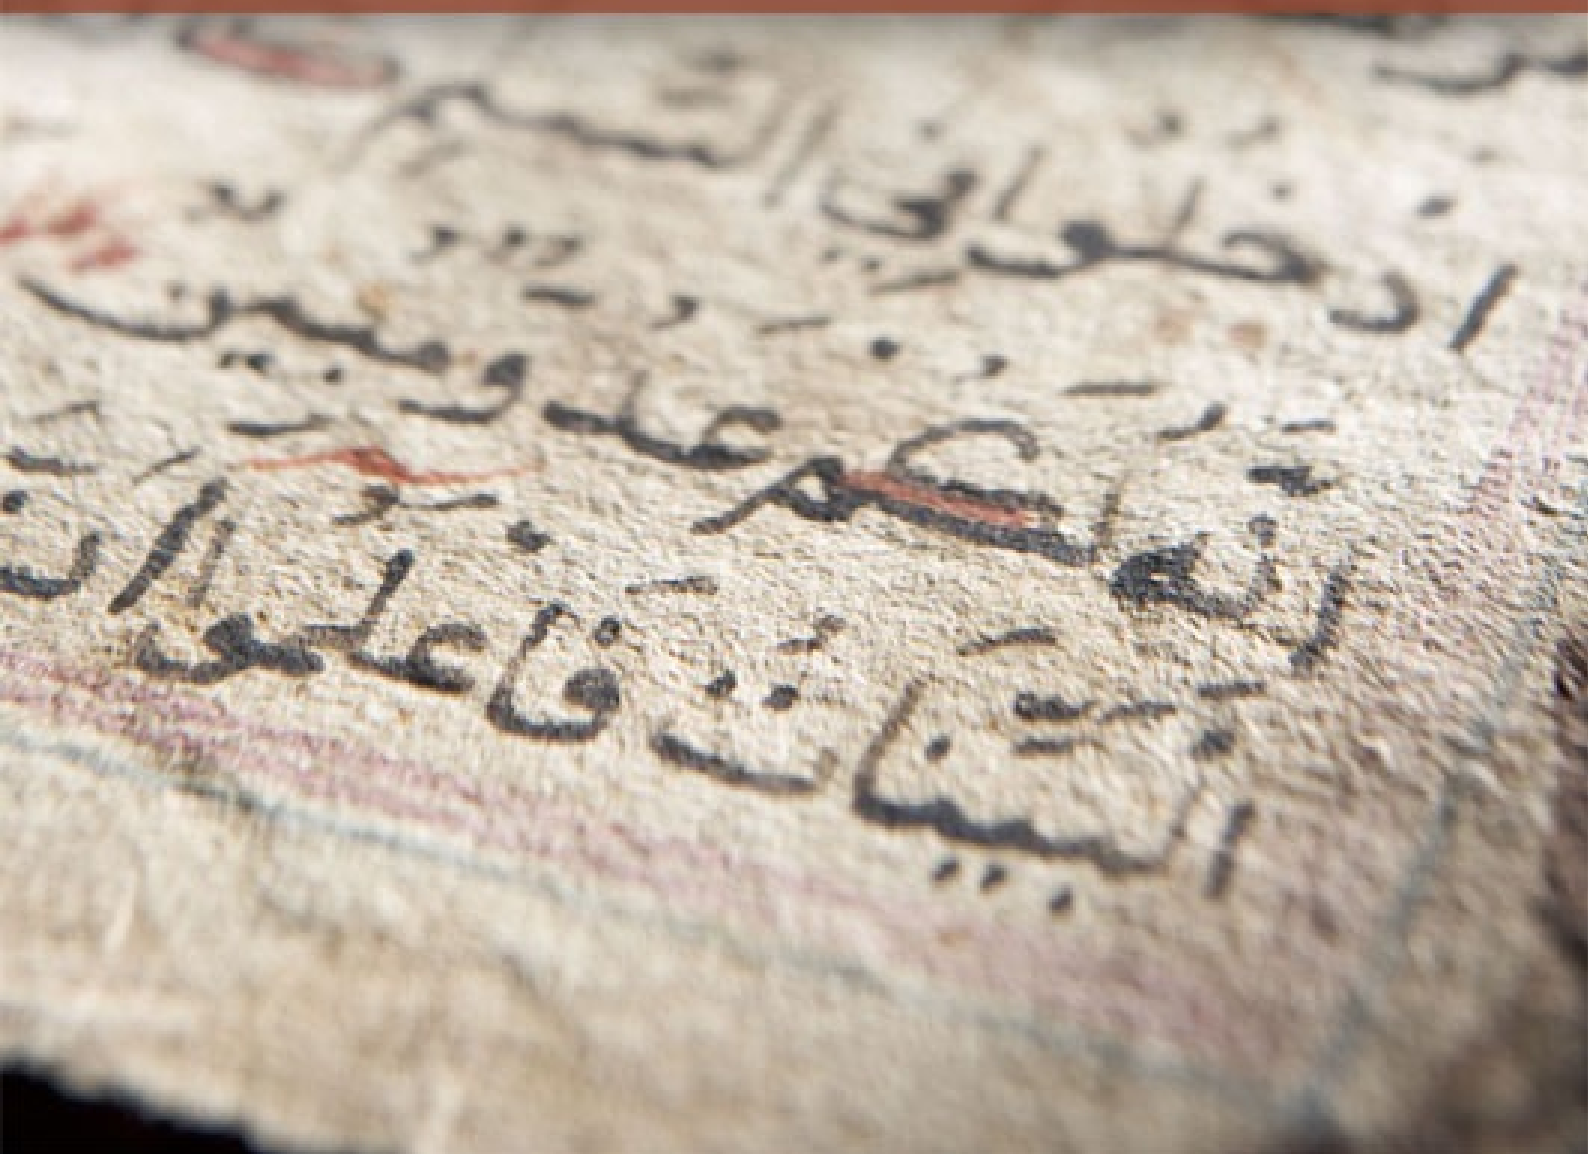 ادخلوا في السلم
إنه لكم عدو مبين
البينات فاعلموا أن